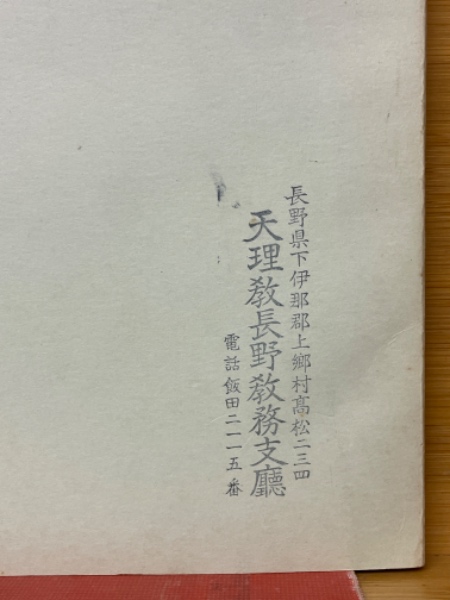 長野県下伊那郡上郷村高松二三四
天理教長野教務支廳
電話飯田二一一五番